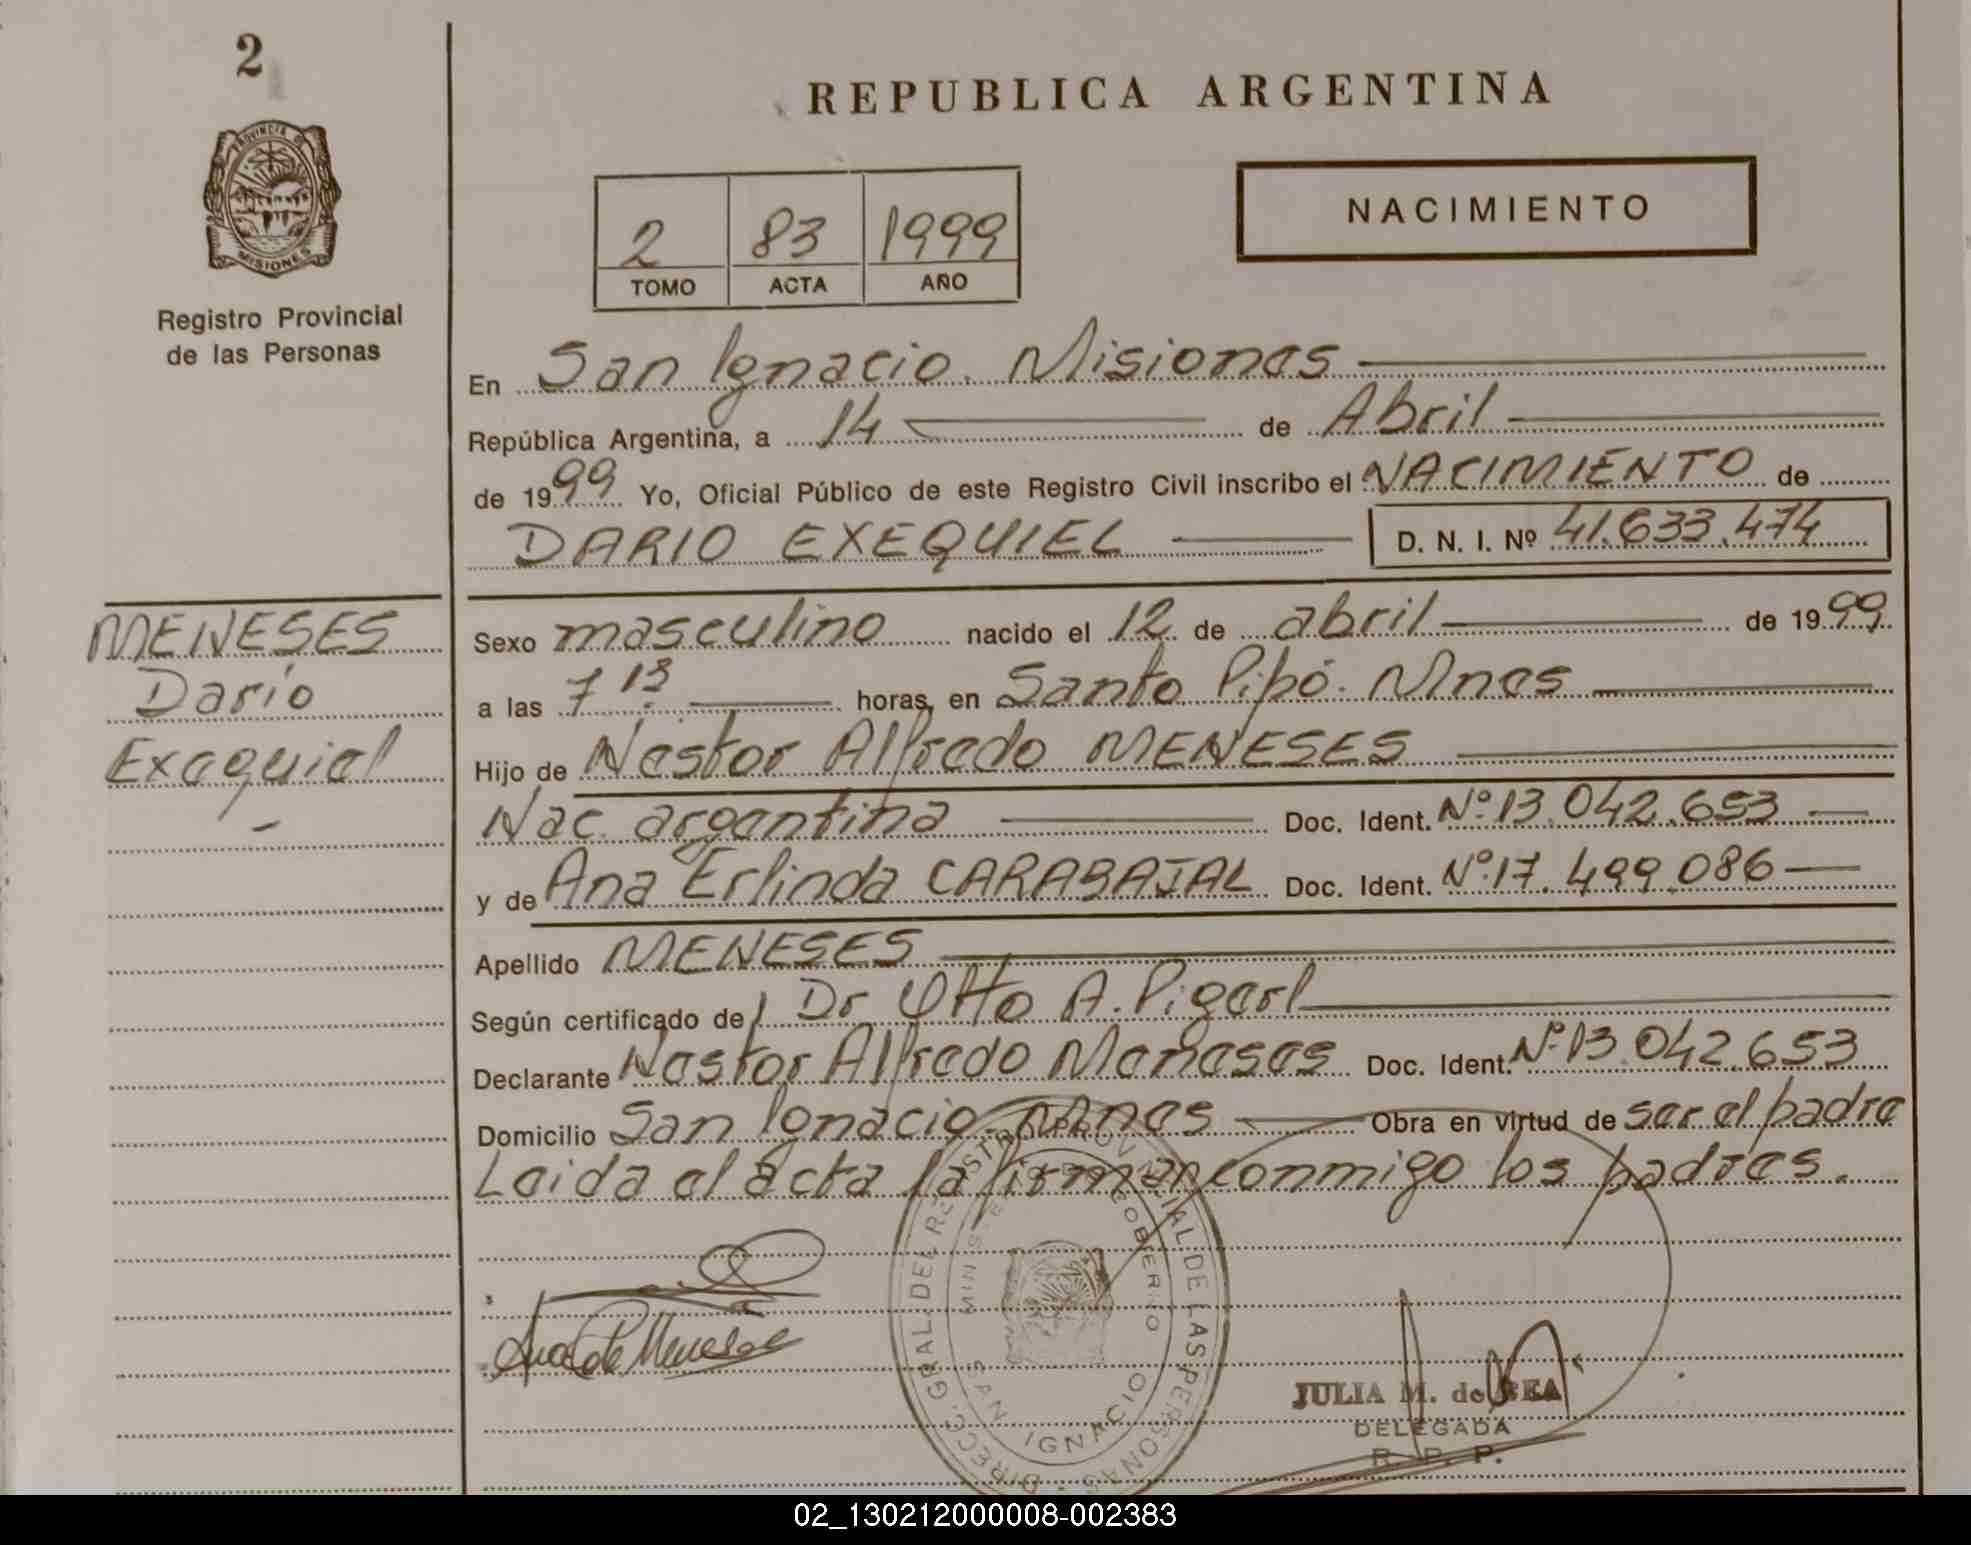 2
REPUBLICA ARGENTINA
PROVINCIA DE
MISIONES
Registro Provincial
de las Personas
2 83 1999
TOMO ACTA AÑO
NACIMIENTO
En San Ignacio. Misiones
República Argentina, a 14 de Abril
de 1999 Yo, Oficial Público de este Registro Civil inscribo el NACIMIENTO de
DARIO EXEQUIEL D. N. I. Nº 41.633.474
MENESES
Darío
Exequiel
Sexo masculino nacido el 12 de abril de 1999
a las 7 13 horas, en Santo Pipó. Mnes
Hijo de Nestor Alfredo MENESES
Nac. argentina Doc. Ident. Nº 13.042.653
y de Ana Erlinda CARABAJAL Doc. Ident. Nº 17.499.086
Apellido MENESES
Según certificado de Dr Otto A.
Declarante Nestor Alfredo Meneses Doc. Ident. Nº 13.042.653
Domicilio San Ignacio. Mnes Obra en virtud de ser el padre
Leida el acta la firman conmigo los padres.
Ana de Meneses
DIRECC. GRAL. DEL REGISTRO PROVINCIAL DE LAS PERSONAS
GOBIERNO
SAN IGNACIO
JULIA M. de
DELEGADA
R. P. P.
02_130212000008-002383